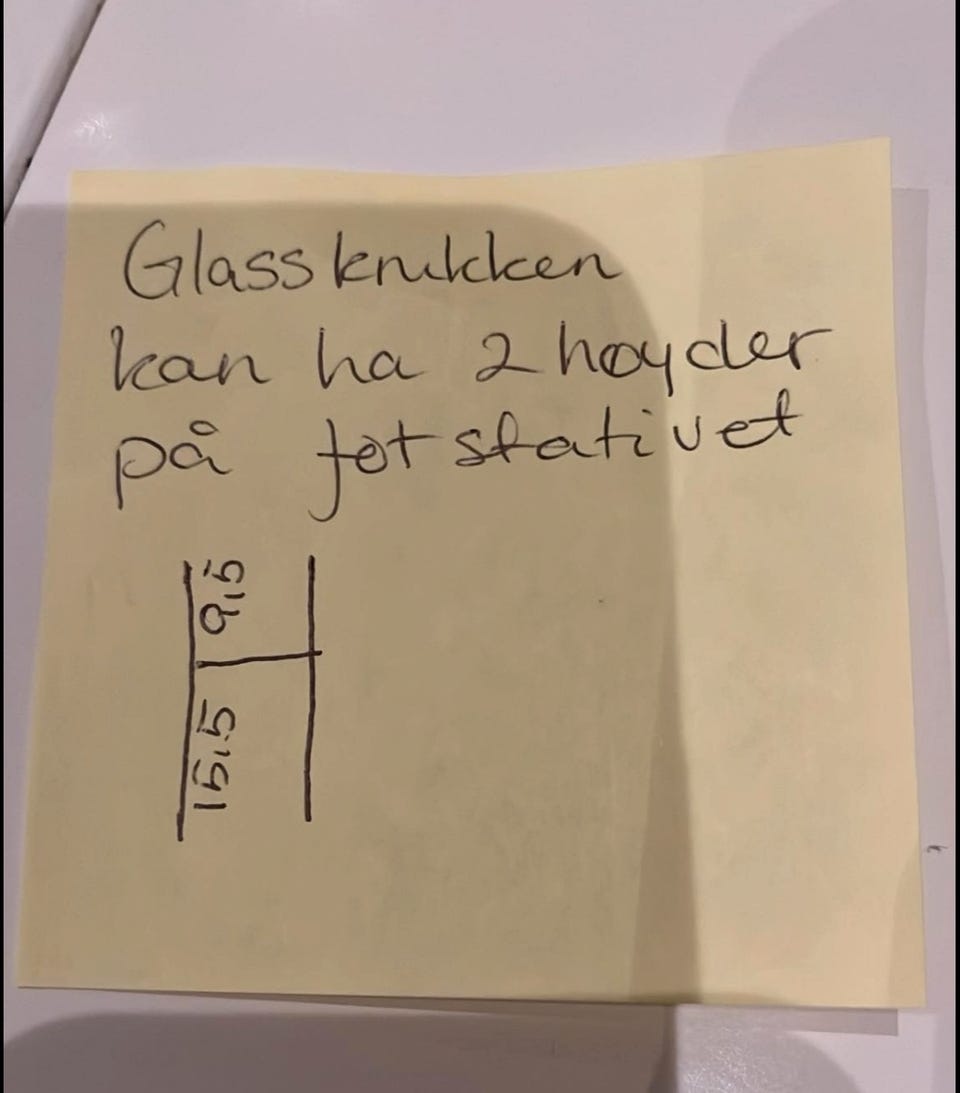 Glasskrukken
kan ha 2 høyder
på fotstativet
9,5
15,5